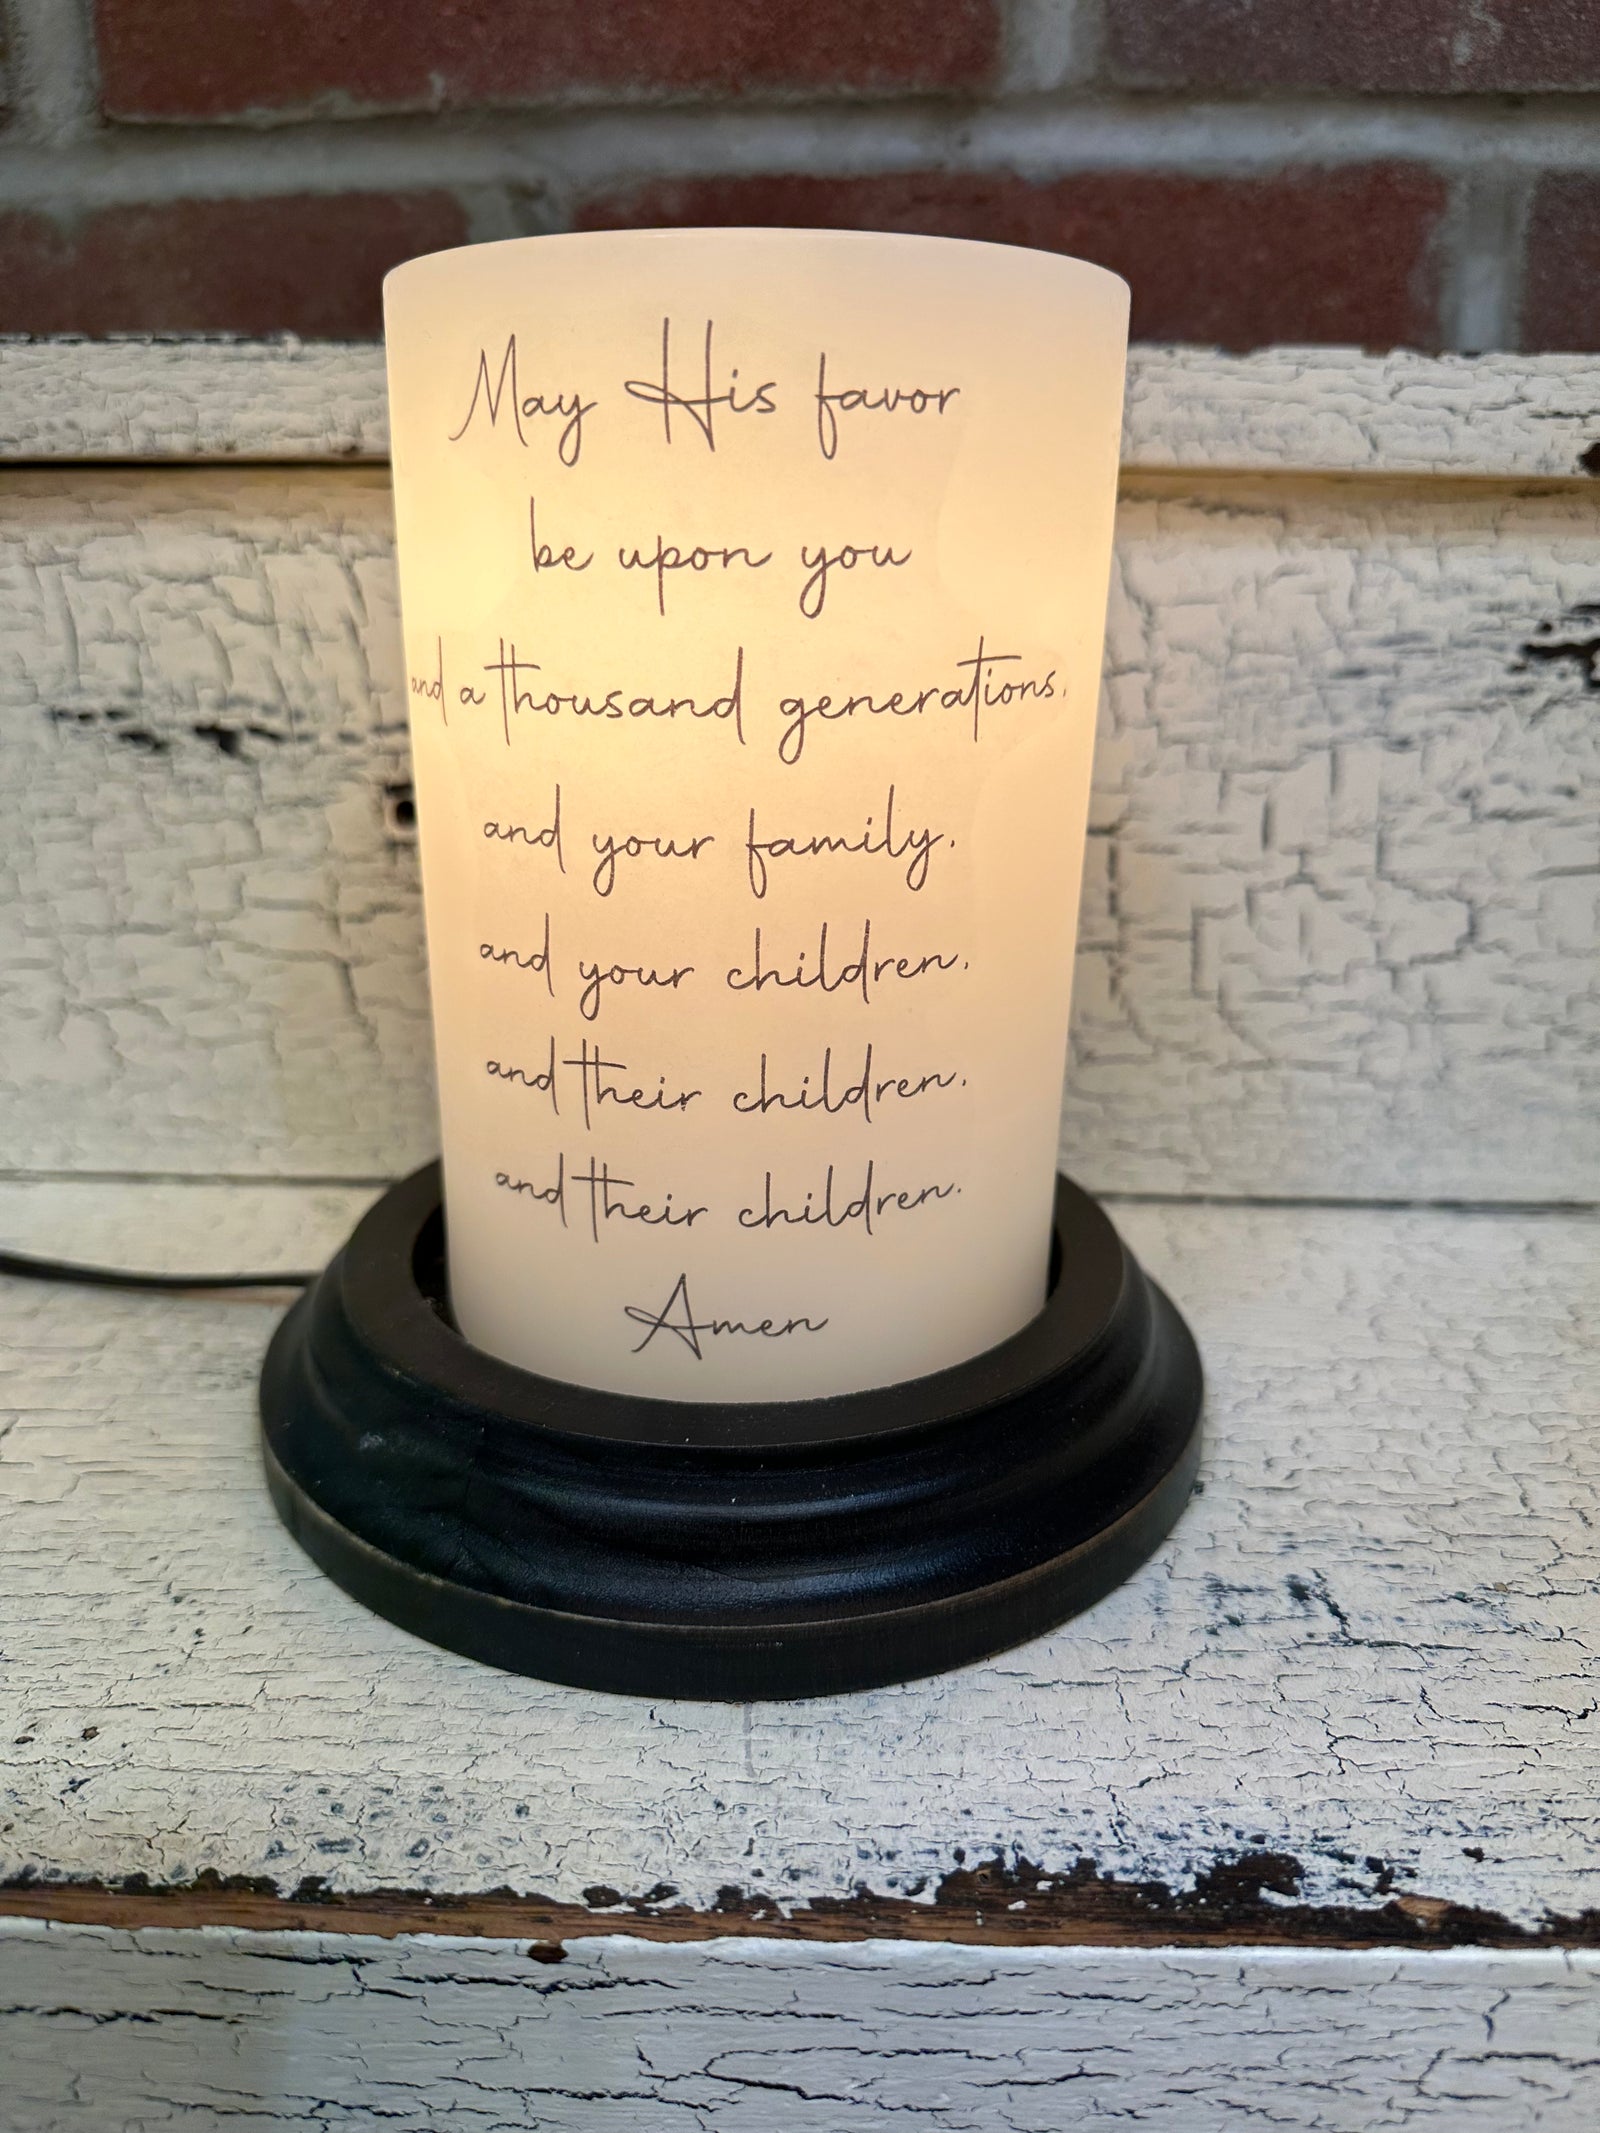 May His favor
be upon you
and a thousand generations.
and your family.
and your children.
and their children.
and their children.
Amen